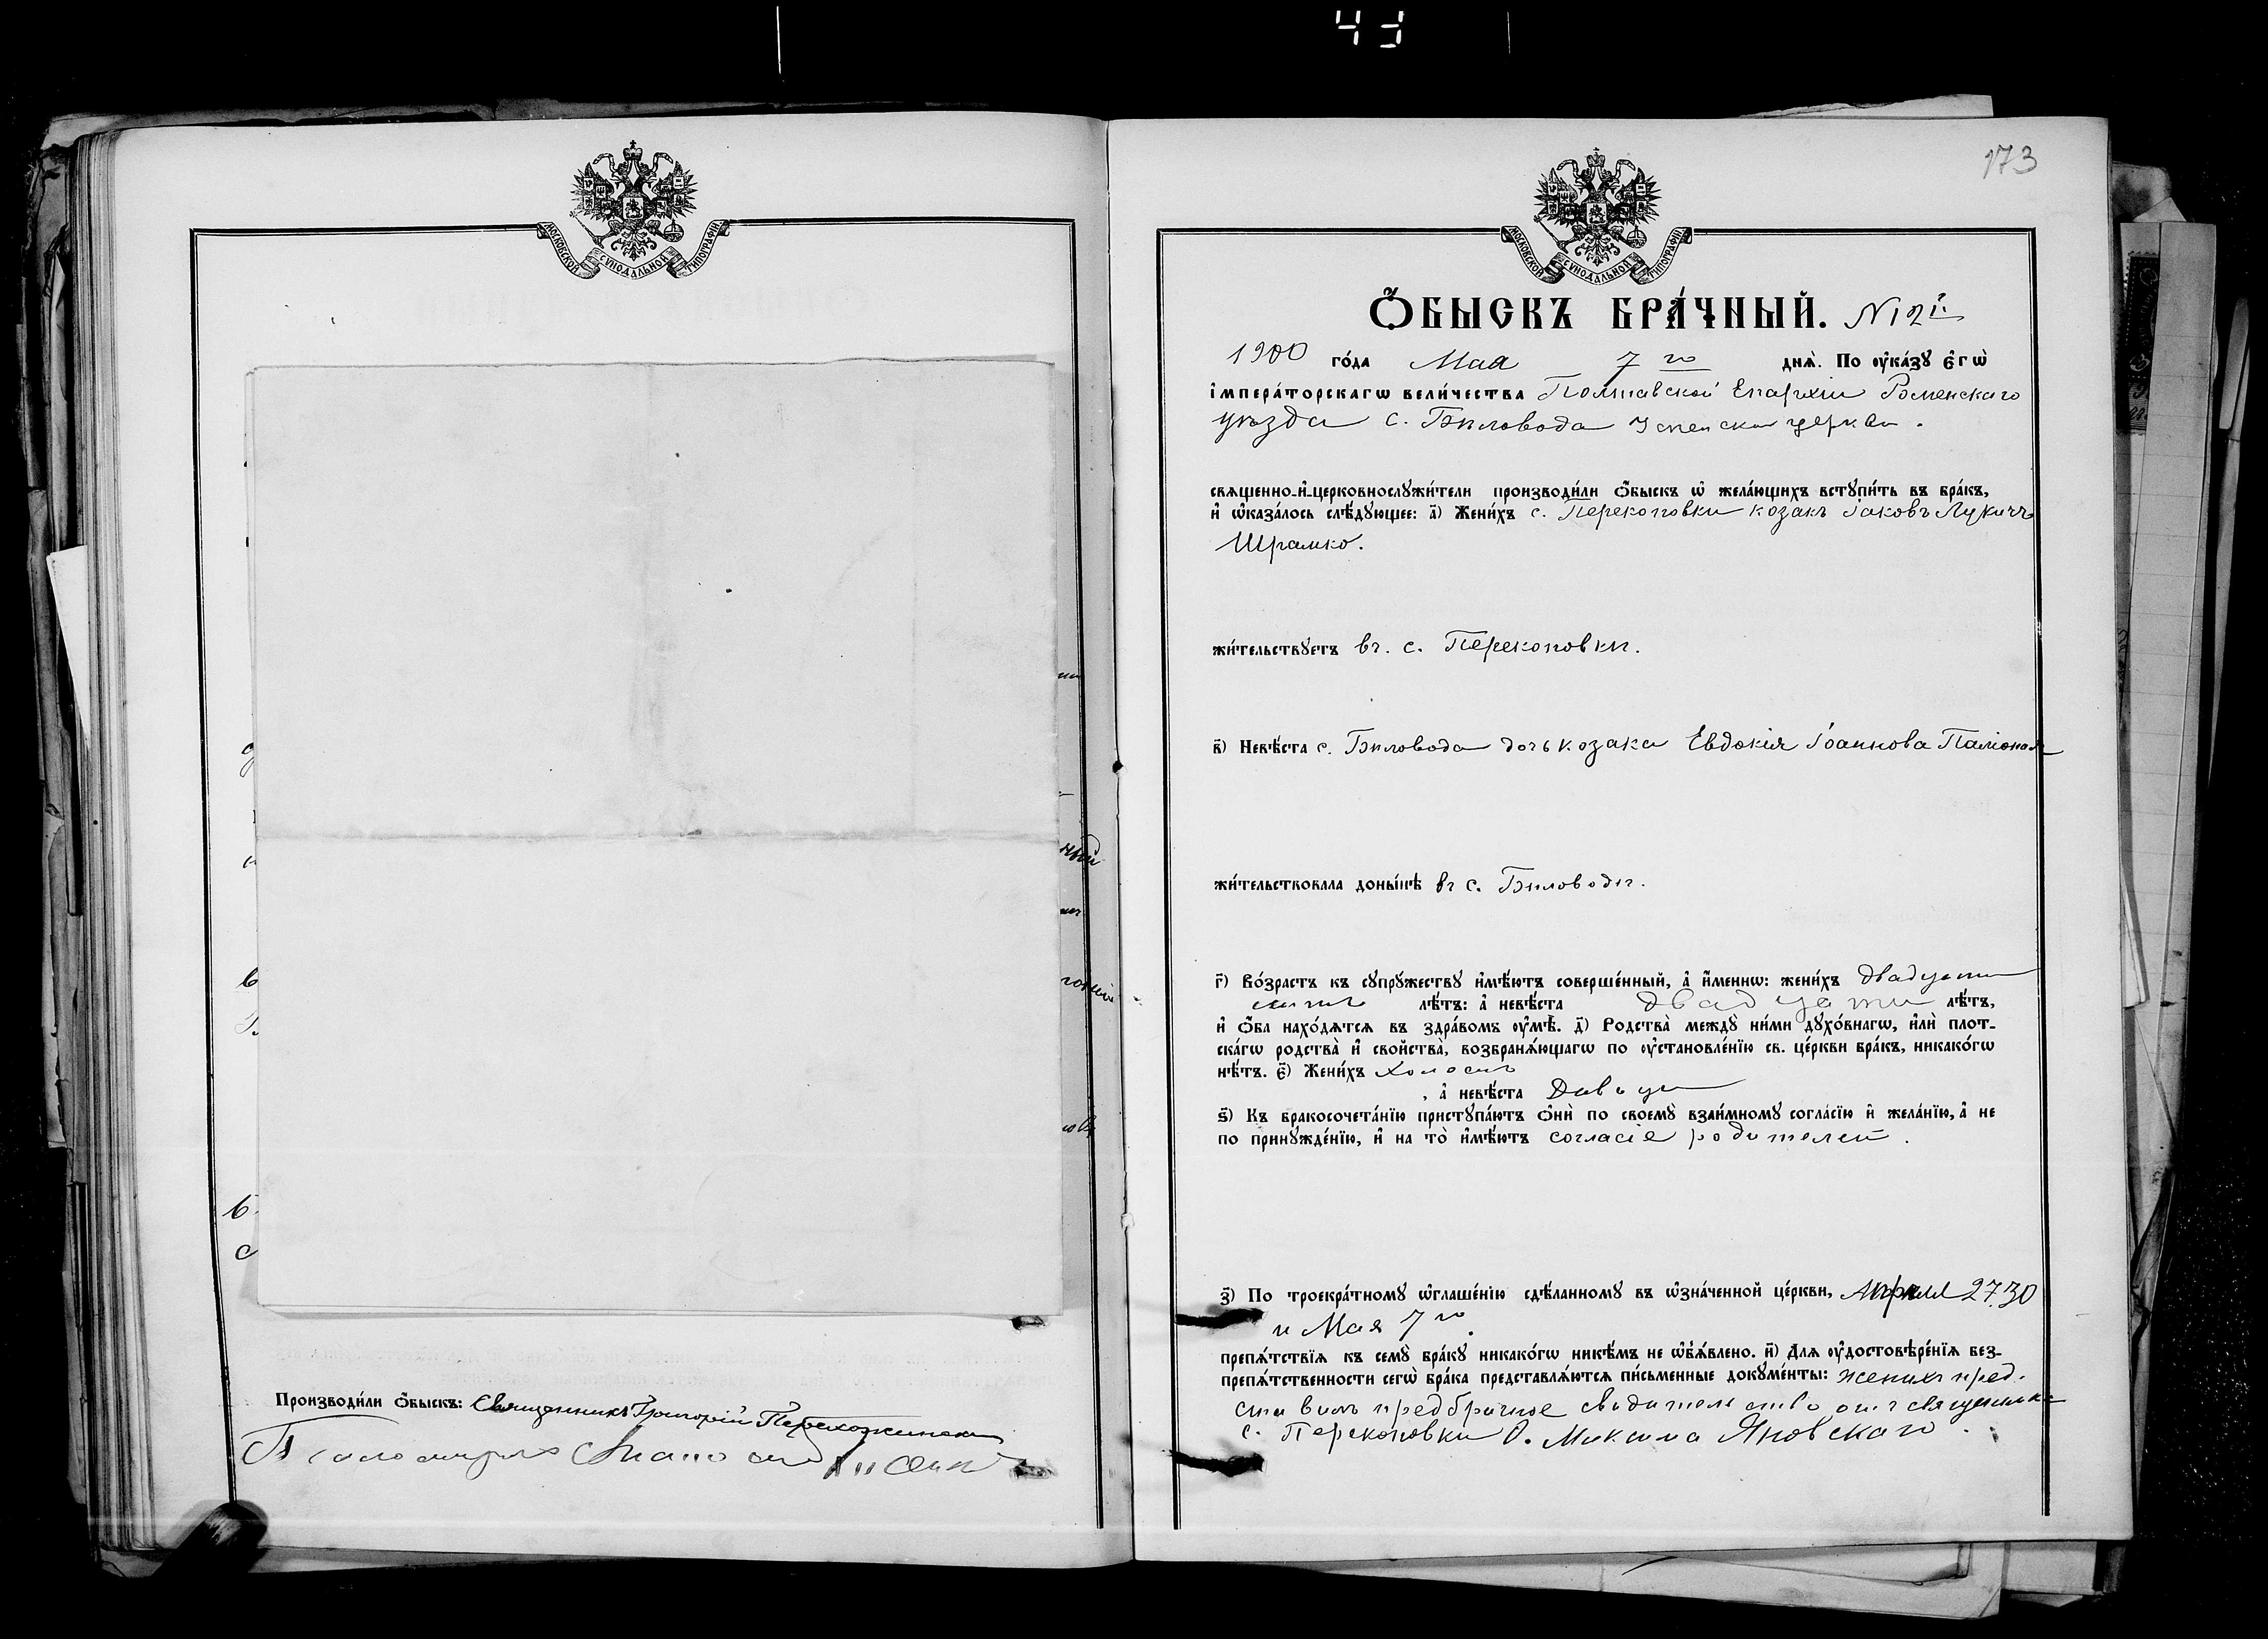 43
МОСКОВСКОЙ СѴНОДАЛЬНОЙ ТИПОГРАФІИ
Производи́ли ѻ҆́быскъ: Священникъ Григорій
Псаломщикъ
173
МОСКОВСКОЙ СѴНОДАЛЬНОЙ ТИПОГРАФІИ
Ѻ҆́БЫСКЪ БРА́ЧНЫЙ. N 12й
1900 го́да Мая 7го днѧ̀. По ᲂу҆ка́зꙋ є҆гѡ̀
і҆мпера́торскагѡ вели́чества Полтавской Епархіи Роменскаго
уѣзда с. Бѣловода Успенской церкви.
свѧщенно-и҆-церковнослꙋжи́тели производи́ли ѻ҆́быскъ ѡ҆ жела́ющихъ встꙋпи́ть въ бра́къ,
и҆ ѡ҆каза́лось слѣ́дꙋющее: а҃) Жени́хъ с. Перекоповки козакъ Іаковъ Лукичъ
Шрамко.
жи́тельствꙋетъ въ с. Перекоповки.
в҃) Невѣ́ста с. Бѣловода дочь козака Евдокія Іоаннова
жи́тельствовала доны́нѣ въ с. Бѣловодѣ.
г҃) Во́зрастъ къ сꙋпрꙋ́жествꙋ и҆мѣ́ютъ соверше́нный, а҆ и҆́меннѡ: жени́хъ двадцати
лѣ́тъ: а҆ невѣ́ста двадцати лѣ́тъ,
и҆ ѻ҆́ба нахо́дѧтсѧ въ здра́вомъ ᲂу҆мѣ̀. д҃) Родства̀ междꙋ̀ ни́ми дꙋхо́внагѡ, и҆лѝ плот-
ска́гѡ родства̀ и҆ свойства̀, возбранѧ́ющагѡ по ᲂу҆становле́нїю св. це́ркви бра́къ, никако́гѡ
нѣ́тъ. є҃) Жени́хъ холостъ
, а҆ невѣ́ста Дѣвица
ѕ҃) Къ бракосочета́нїю пристꙋпа́ютъ ѻ҆нѝ по своемꙋ̀ взаи́мномꙋ согла́сїю и҆ жела́нїю, а҆ не
по принꙋжде́нїю, и҆ на то̀ и҆мѣ́ютъ согласіе родителей.
з҃) По троекра́тномꙋ ѡ҆глаше́нїю сдѣ́ланномꙋ въ ѡ҆зна́ченной це́ркви, Апреля 27. 30
и Мая 7го.
препѧ́тствїѧ къ семꙋ̀ бра́кꙋ никако́гѡ никѣ́мъ не ѡ҆бъѧ́влено. и҃) Длѧ ᲂу҆достовѣре́нїѧ без-
препѧ́тственности сегѡ̀ бра́ка представлѧ́ютсѧ пи́сьменные докꙋме́нты: женихъ пред-
ставилъ предбрачное свидѣтельство отъ священника
с. Перекоповки О. Максима Яновскаго.